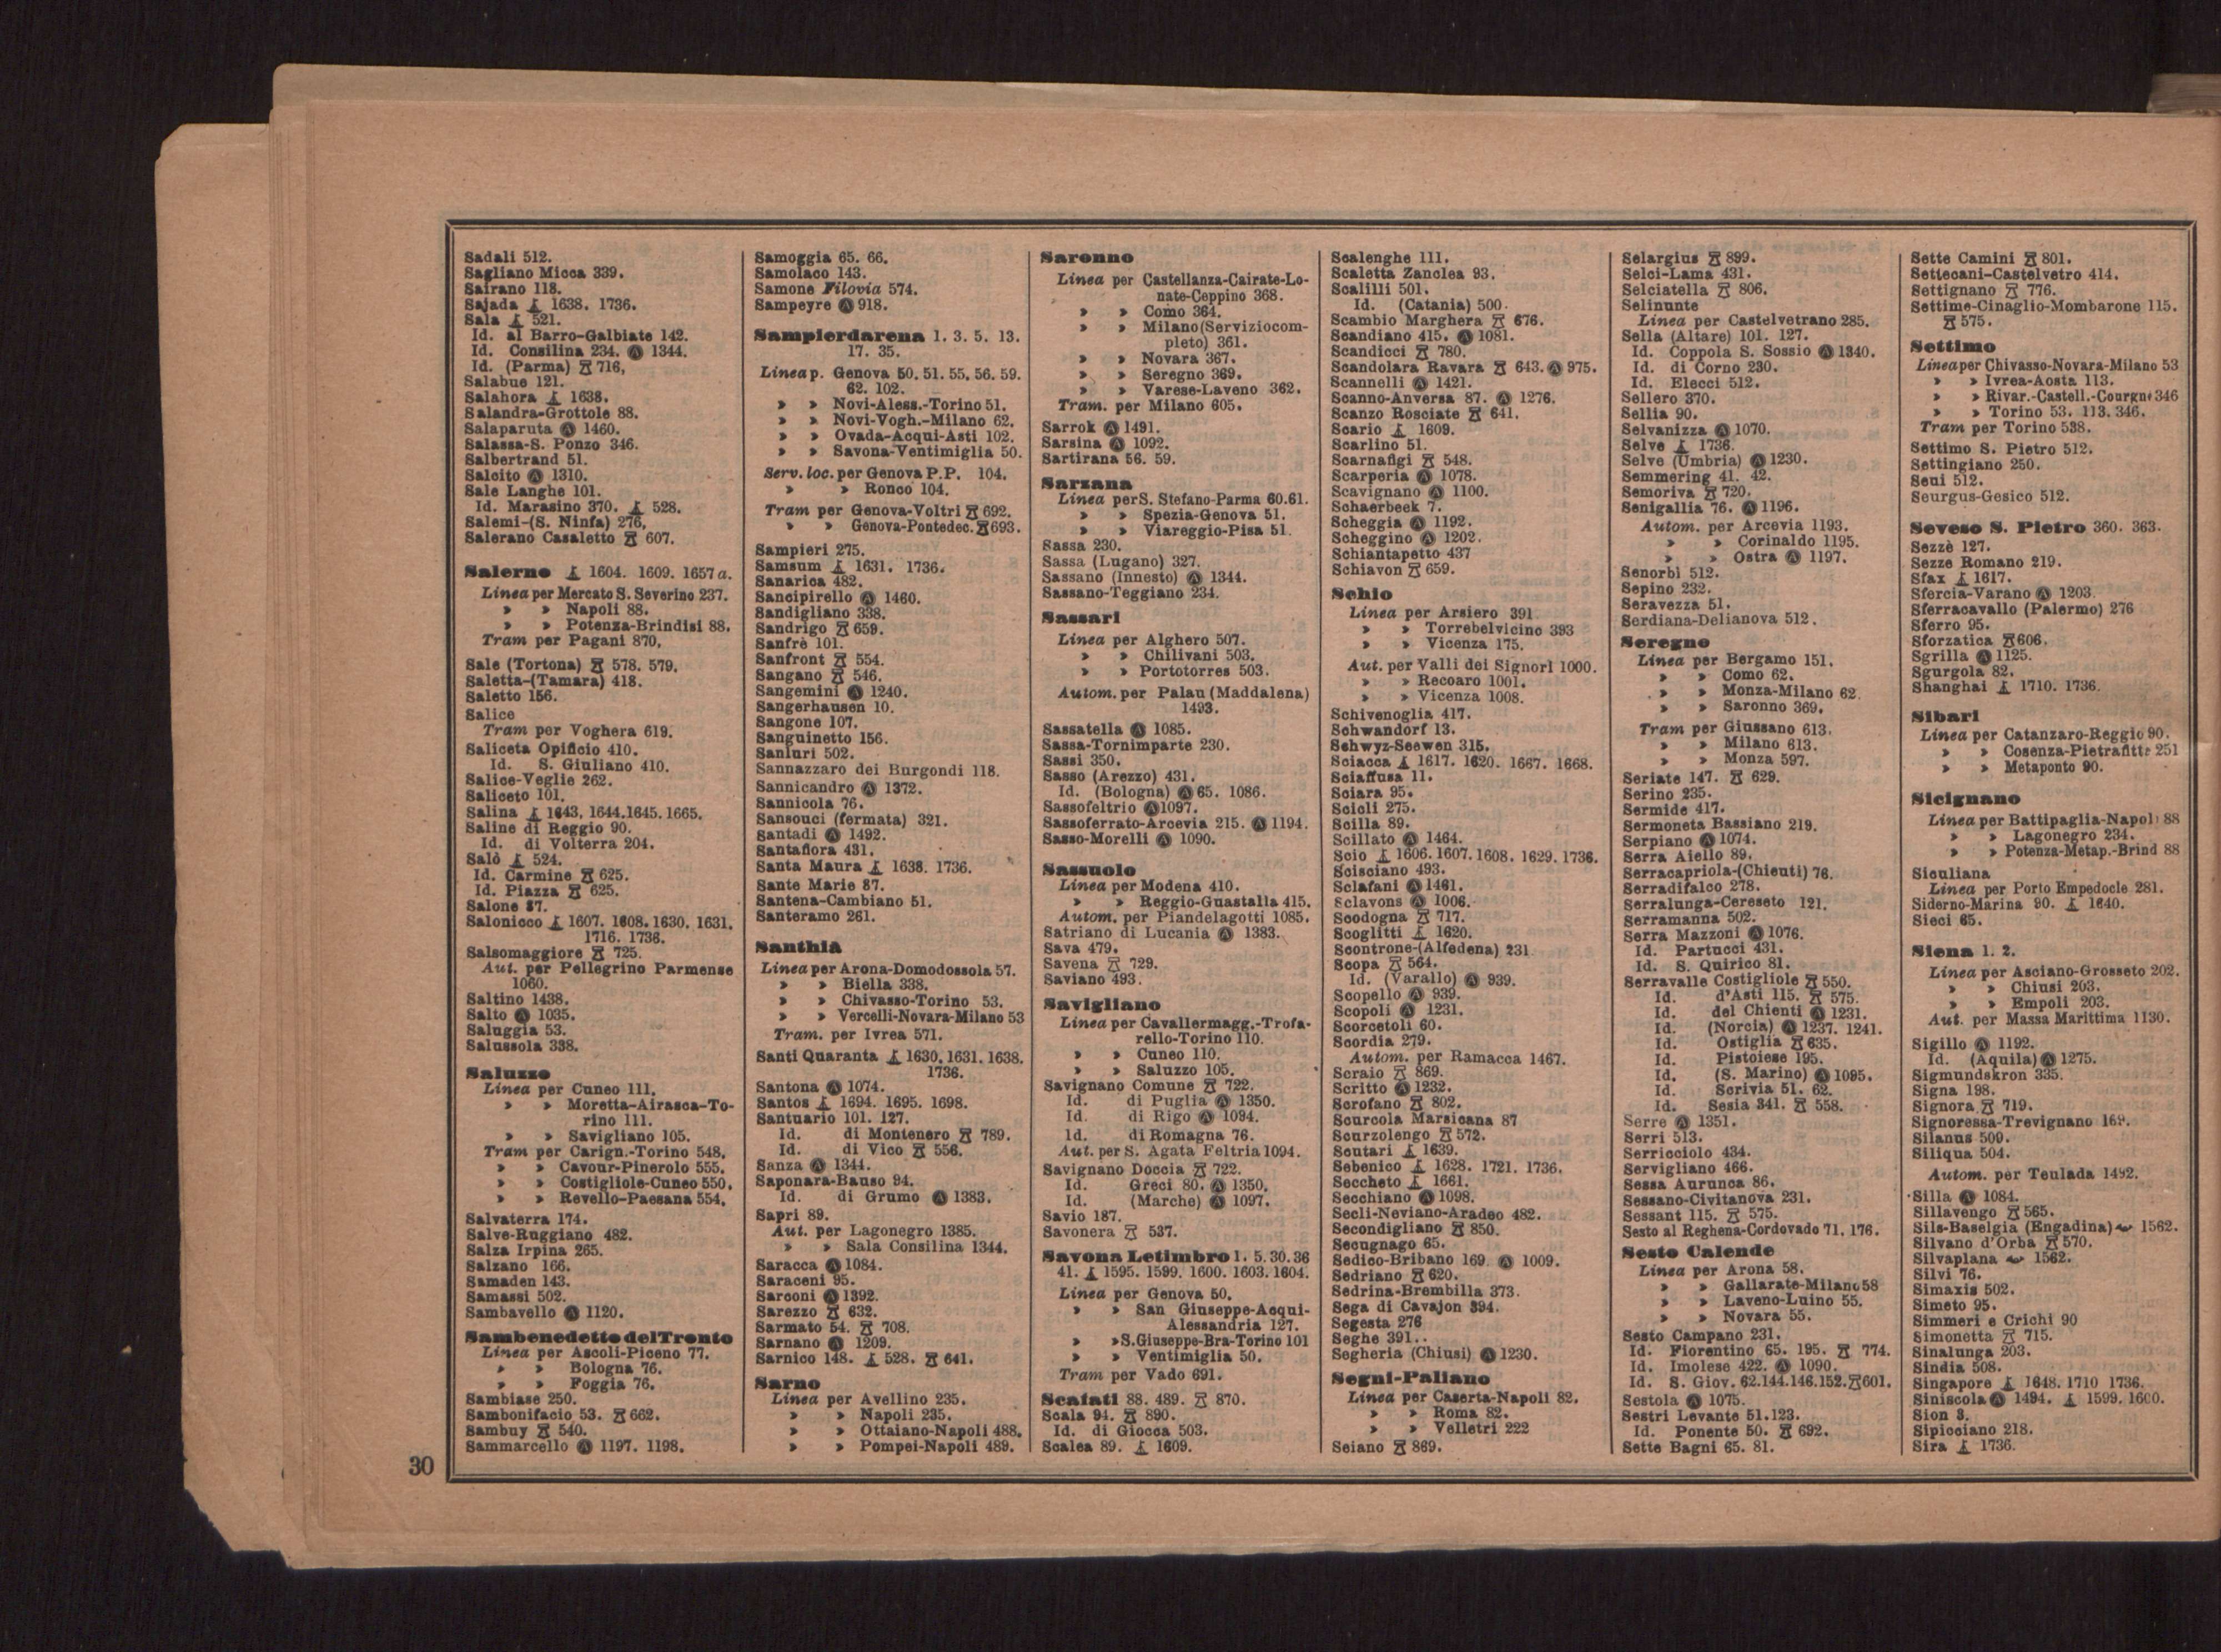 Sadali 512.
Sagliano Micca 339.
Sairano 118.
Sajada 1638. 1736.
Sala 521.
Id. al Barro-Galbiate 142.
Id. Consilina 234. Ⓐ 1344.
Id. (Parma) 716,
Salabue 121.
Salahora 1638.
Salandra-Grottole 88.
Salaparuta Ⓐ 1460.
Salassa-S. Ponzo 346.
Salbertrand 51.
Salcito Ⓐ 1310.
Sale Langhe 101.
Id. Marasino 370. 528.
Salemi-(S. Ninfa) 276,
Salerano Casaletto 607.
Salerno 1604. 1609. 1657 a.
Linea per Mercato S. Severino 237.
» » Napoli 88.
» » Potenza-Brindisi 88.
Tram per Pagani 870.
Sale (Tortona) 578. 579.
Saletta-(Tamara) 418.
Saletto 156.
Salice
Tram per Voghera 619.
Saliceta Opificio 410.
Id. S. Giuliano 410.
Salice-Veglie 262.
Saliceto 101.
Salina 1643, 1644.1645. 1665.
Saline di Reggio 90.
Id. di Volterra 204.
Salò 524.
Id. Carmine 625.
Id. Piazza 625.
Salone 87.
Salonicco 1607. 1608. 1630. 1631.
1716. 1736.
Salsomaggiore 725.
Aut. per Pellegrino Parmense
1060.
Saltino 1438.
Salto Ⓐ 1035.
Saluggia 53.
Salussola 338.
Saluzzo
Linea per Cuneo 111.
» » Moretta-Airasca-To-
rino 111.
» » Savigliano 105.
Tram per Carign.-Torino 548.
» » Cavour-Pinerolo 555.
» » Costigliole-Cuneo 550.
» » Revello-Paesana 554.
Salvaterra 174.
Salve-Ruggiano 482.
Salza Irpina 265.
Salzano 166.
Samaden 143.
Samassi 502.
Sambavello Ⓐ 1120.
Sambenedetto del Tronto
Linea per Ascoli-Piceno 77.
» » Bologna 76.
» » Foggia 76.
Sambiase 250.
Sambonifacio 53. 662.
Sambuy 540.
Sammarcello Ⓐ 1197. 1198.
30
Samoggia 65. 66.
Samolaco 143.
Samone Filovia 574.
Sampeyre Ⓐ 918.
Sampierdarena 1. 3. 5. 13.
17. 35.
Linea p. Genova 50. 51. 55. 56. 59.
62. 102.
» » Novi-Aless.-Torino 51.
» » Novi-Vogh.-Milano 62.
» » Ovada-Acqui-Asti 102.
» » Savona-Ventimiglia 50.
Serv. loc. per Genova P.P. 104.
» » Ronco 104.
Tram per Genova-Voltri 692.
» » Genova-Pontedec. 693.
Sampieri 275.
Samsum 1631. 1736.
Sanarica 482.
Sancipirello Ⓐ 1460.
Sandigliano 338.
Sandrigo 659.
Sanfrè 101.
Sanfront 554.
Sangano 546.
Sangemini Ⓐ 1240.
Sangerhausen 10.
Sangone 107.
Sanguinetto 156.
Sanluri 502.
Sannazzaro dei Burgondi 118.
Sannicandro Ⓐ 1372.
Sannicola 76.
Sansouci (fermata) 321.
Santadi Ⓐ 1492.
Santafiora 431.
Santa Maura 1638. 1736.
Sante Marie 87.
Santena-Cambiano 51.
Santeramo 261.
Santhià
Linea per Arona-Domodossola 57.
» » Biella 338.
» » Chivasso-Torino 53.
» » Vercelli-Novara-Milano 53
Tram. per Ivrea 571.
Santi Quaranta 1630. 1631. 1638.
1736.
Santona Ⓐ 1074.
Santos 1694. 1695. 1698.
Santuario 101. 127.
Id. di Montenero 789.
Id. di Vico 556.
Sanza Ⓐ 1344.
Saponara-Bauso 94.
Id. di Grumo Ⓐ 1383.
Sapri 89.
Aut. per Lagonegro 1385.
» » Sala Consilina 1344.
Saracca Ⓐ 1084.
Saraceni 95.
Sarconi Ⓐ 1392.
Sarezzo 632.
Sarmato 54. 708.
Sarnano Ⓐ 1209.
Sarnico 148. 528. 641.
Sarno
Linea per Avellino 235.
» » Napoli 235.
» » Ottaiano-Napoli 488.
» » Pompei-Napoli 489.
Saronno
Linea per Castellanza-Cairate-Lo-
nate-Ceppino 368.
» » Como 364.
» » Milano (Serviziocom-
pleto) 361.
» » Novara 367.
» » Seregno 369.
» » Varese-Laveno 362.
Tram. per Milano 605.
Sarrok Ⓐ 1491.
Sarsina Ⓐ 1092.
Sartirana 56. 59.
Sarzana
Linea per S. Stefano-Parma 60.61.
» » Spezia-Genova 51.
» » Viareggio-Pisa 51.
Sassa 230.
Sassa (Lugano) 327.
Sassano (Innesto) Ⓐ 1344.
Sassano-Teggiano 234.
Sassari
Linea per Alghero 507.
» » Chilivani 503.
» » Portotorres 503.
Autom. per Palau (Maddalena)
1493.
Sassatella Ⓐ 1085.
Sassa-Tornimparte 230.
Sassi 350.
Sasso (Arezzo) 431.
Id. (Bologna) Ⓐ 65. 1086.
Sassofeltrio Ⓐ 1097.
Sassoferrato-Arcevia 215. Ⓐ 1194.
Sasso-Morelli Ⓐ 1090.
Sassuolo
Linea per Modena 410.
» » Reggio-Guastalla 415.
Autom. per Piandelagotti 1085.
Satriano di Lucania Ⓐ 1383.
Sava 479.
Savena 729.
Saviano 493.
Savigliano
Linea per Cavallermagg.-Trofa-
rello-Torino 110.
» » Cuneo 110.
» » Saluzzo 105.
Savignano Comune 722.
Id. di Puglia Ⓐ 1350.
Id. di Rigo Ⓐ 1094.
Id. di Romagna 76.
Aut. per S. Agata Feltria 1094.
Savignano Doccia 722.
Id. Greci 80. Ⓐ 1350.
Id. (Marche) Ⓐ 1097.
Savio 187.
Savonera 537.
Savona Letimbro 1. 5. 30. 36
41. 1595. 1599. 1600. 1603. 1604.
Linea per Genova 50.
» » San Giuseppe-Acqui-
Alessandria 127.
» » S.Giuseppe-Bra-Torino 101
» » Ventimiglia 50.
Tram per Vado 691.
Scafati 88. 489. 870.
Scala 94. 890.
Id. di Giocca 503.
Scalea 89. 1609.
Scalenghe 111.
Scaletta Zanclea 93.
Scalilli 501.
Id. (Catania) 500.
Scambio Marghera 676.
Scandiano 415. Ⓐ 1081.
Scandicci 780.
Scandolara Ravara 643. Ⓐ 975.
Scannelli Ⓐ 1421.
Scanno-Anversa 87. Ⓐ 1276.
Scanzo Rosciate 641.
Scario 1609.
Scarlino 51.
Scarnafigi 548.
Scarperia Ⓐ 1078.
Scavignano Ⓐ 1100.
Schaerbeek 7.
Scheggia Ⓐ 1192.
Scheggino Ⓐ 1202.
Schiantapetto 437
Schiavon 659.
Schio
Linea per Arsiero 391
» » Torrebelvicino 393
» » Vicenza 175.
Aut. per Valli dei Signori 1000.
» » Recoaro 1001.
» » Vicenza 1008.
Schivenoglia 417.
Schwandorf 13.
Schwyz-Seewen 315.
Sciacca 1617. 1620. 1667. 1668.
Sciaffusa 11.
Sciara 95.
Scicli 275.
Scilla 89.
Scillato Ⓐ 1464.
Scio 1606. 1607. 1608. 1629. 1736.
Scisciano 493.
Sclafani Ⓐ 1461.
Sclavons Ⓐ 1006.
Scodogna 717.
Scoglitti 1620.
Scontrone-(Alfedena) 231
Scopa 564.
Id. (Varallo) Ⓐ 939.
Scopello Ⓐ 939.
Scopoli Ⓐ 1231.
Scorcetoli 60.
Scordia 279.
Autom. per Ramacca 1467.
Scraio 869.
Scritto Ⓐ 1232.
Scrofano 802.
Scurcola Marsicana 87
Scurzolengo 572.
Scutari 1639.
Sebenico 1628. 1721. 1736.
Seccheto 1661.
Secchiano Ⓐ 1098.
Secli-Neviano-Aradeo 482.
Secondigliano 850.
Secugnago 65.
Sedico-Bribano 169 Ⓐ 1009.
Sedriano 620.
Sedrina-Brembilla 373.
Sega di Cavajon 394.
Segesta 276
Seghe 391.
Segheria (Chiusi) Ⓐ 1230.
Segni-Paliano
Linea per Caserta-Napoli 82.
» » Roma 82.
» » Velletri 222
Seiano 869.
Selargius 899.
Selci-Lama 431.
Selciatella 806.
Selinunte
Linea per Castelvetrano 285.
Sella (Altare) 101. 127.
Id. Coppola S. Sossio Ⓐ 1340.
Id. di Corno 230.
Id. Elecci 512.
Sellero 370.
Sellia 90.
Selvanizza Ⓐ 1070.
Selve 1736.
Selve (Umbria) Ⓐ 1230.
Semmering 41. 42.
Semoriva 720.
Senigallia 76. Ⓐ 1196.
Autom. per Arcevia 1193.
» » Corinaldo 1195.
» » Ostra Ⓐ 1197.
Senorbì 512.
Sepino 232.
Seravezza 51.
Serdiana-Delianova 512.
Seregno
Linea per Bergamo 151.
» » Como 62.
» » Monza-Milano 62.
» » Saronno 369.
Tram per Giussano 613.
» » Milano 613.
» » Monza 597.
Seriate 147. 629.
Serino 235.
Sermide 417.
Sermoneta Bassiano 219.
Serpiano Ⓐ 1074.
Serra Aiello 89.
Serracapriola-(Chieuti) 76.
Serradifalco 278.
Serralunga-Cereseto 121.
Serramanna 502.
Serra Mazzoni Ⓐ 1076.
Id. Partucci 431.
Id. S. Quirico 81.
Serravalle Costigliole 550.
Id. d'Asti 115. 575.
Id. del Chienti Ⓐ 1231.
Id. (Norcia) Ⓐ 1237. 1241.
Id. Ostiglia 635.
Id. Pistoiese 195.
Id. (S. Marino) Ⓐ 1095.
Id. Scrivia 51. 62.
Id. Sesia 341. 558.
Serre Ⓐ 1351.
Serri 513.
Serricciolo 434.
Servigliano 466.
Sessa Aurunca 86.
Sessano-Civitanova 231.
Sessant 115. 575.
Sesto al Reghena-Cordovado 71. 176.
Sesto Calende
Linea per Arona 58.
» » Gallarate-Milano 58
» » Laveno-Luino 55.
» » Novara 55.
Sesto Campano 231.
Id. Fiorentino 65. 195. 774.
Id. Imolese 422. Ⓐ 1090.
Id. S. Giov. 62.144.146.152. 601.
Sestola Ⓐ 1075.
Sestri Levante 51.123.
Id. Ponente 50. 692.
Sette Bagni 65. 81.
Sette Camini 801.
Settecani-Castelvetro 414.
Settignano 776.
Settime-Cinaglio-Mombarone 115.
575.
Settimo
Linea per Chivasso-Novara-Milano 53
» » Ivrea-Aosta 113.
» » Rivar.-Castell.-Courgnè 346
» » Torino 53. 113. 346.
Tram per Torino 538.
Settimo S. Pietro 512.
Settingiano 250.
Seui 512.
Seurgus-Gesico 512.
Seveso S. Pietro 360. 363.
Sezzè 127.
Sezze Romano 219.
Sfax 1617.
Sfercia-Varano Ⓐ 1203.
Sferracavallo (Palermo) 276
Sferro 95.
Sforzatica 606.
Sgrilla Ⓐ 1125.
Sgurgola 82.
Shanghai 1710. 1736.
Sibari
Linea per Catanzaro-Reggio 90.
» » Cosenza-Pietrafitta 251
» » Metaponto 90.
Sicignano
Linea per Battipaglia-Napoli 88
» » Lagonegro 234.
» » Potenza-Metap.-Brind 88
Siculiana
Linea per Porto Empedocle 281.
Siderno-Marina 90. 1640.
Sieci 65.
Siena 1. 2.
Linea per Asciano-Grosseto 202.
» » Chiusi 203.
» » Empoli 203.
Aut. per Massa Marittima 1130.
Sigillo Ⓐ 1192.
Id. (Aquila) Ⓐ 1275.
Sigmundskron 335.
Signa 198.
Signora 719.
Signoressa-Trevignano 169.
Silanus 509.
Siliqua 504.
Autom. per Teulada 1492.
Silla Ⓐ 1084.
Sillavengo 565.
Sils-Baselgia (Engadina) 1562.
Silvano d'Orba 570.
Silvaplana 1562.
Silvi 76.
Simaxis 502.
Simeto 95.
Simmeri e Crichi 90
Simonetta 715.
Sinalunga 203.
Sindia 508.
Singapore 1648. 1710 1736.
Siniscola Ⓐ 1494. 1599. 1600.
Sion 3.
Sipicciano 218.
Sira 1736.